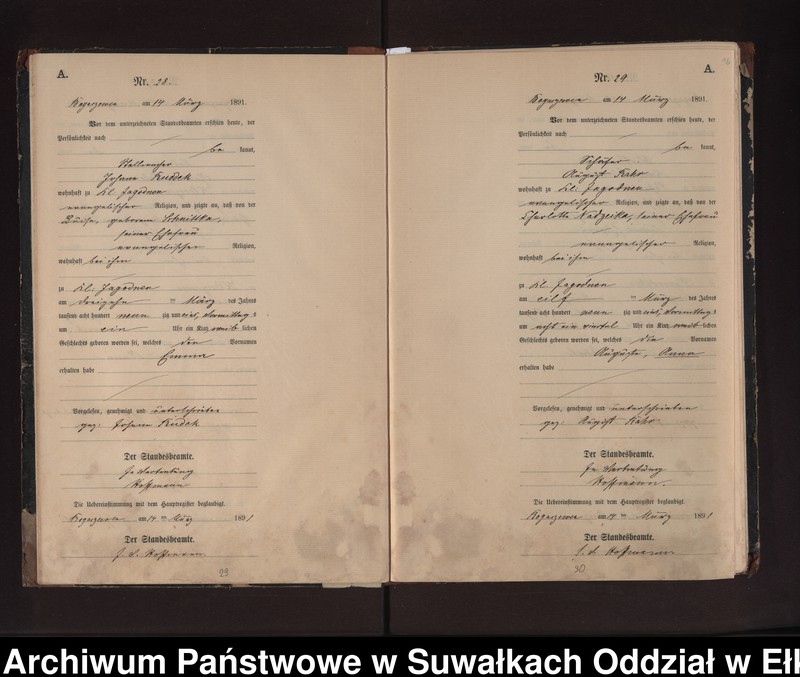 A.
Nr. 28.
am 14 März 1891.
Vor dem unterzeichneten Standesbeamten erschien heute, der
Persönlichkeit nach
be kannt,
Johann
wohnhaft zu Kl. Jagodnen
evangelischer Religion, und zeigte an, daß von der
geborenen
seiner Ehefrau
evangelischer Religion,
wohnhaft bei ihm
zu Kl. Jagodnen
am dreizehn ten März des Jahres
tausend acht hundert neun zig und eins, Vormittag s
um ein Uhr ein Kind weib lichen
Geschlechts geboren worden sei, welches den Vornamen
Emma
erhalten habe
Vorgelesen, genehmigt und unterschrieben
gez: Johann
Der Standesbeamte.
In Vertretung
Die Uebereinstimmung mit dem Hauptregister beglaubigt.
am 14 ten März 1891
Der Standesbeamte.
29
A.
Nr. 29
am 14 März 1891.
Vor dem unterzeichneten Standesbeamten erschien heute, der
Persönlichkeit nach
be kannt,
August
wohnhaft zu Kl. Jagodnen
evangelischer Religion, und zeigte an, daß von der
Charlotte seiner Ehefrau
evangelischer Religion,
wohnhaft bei ihm
zu Kl. Jagodnen
am eilf ten März des Jahres
tausend acht hundert neun zig und eins, Vormittag s
um acht ein viertel Uhr ein Kind weib lichen
Geschlechts geboren worden sei, welches die Vornamen
Auguste, Anna
erhalten habe
Vorgelesen, genehmigt und unterschrieben
gez: August
Der Standesbeamte.
In Vertretung
Die Uebereinstimmung mit dem Hauptregister beglaubigt.
am 14 ten März 1891
Der Standesbeamte.
30
Archiwum Państwowe w Suwałkach Oddział w Ełk